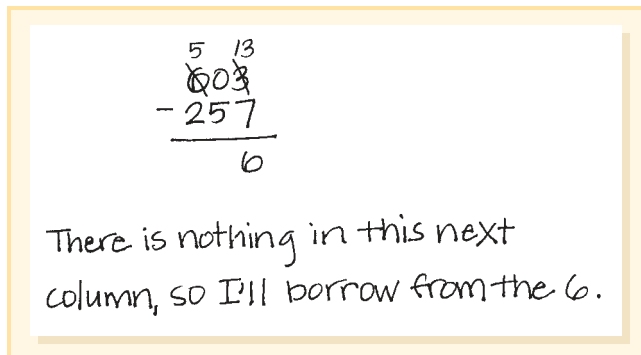 5 13
603
- 257
6
There is nothing in this next
column, so I'll borrow from the 6.